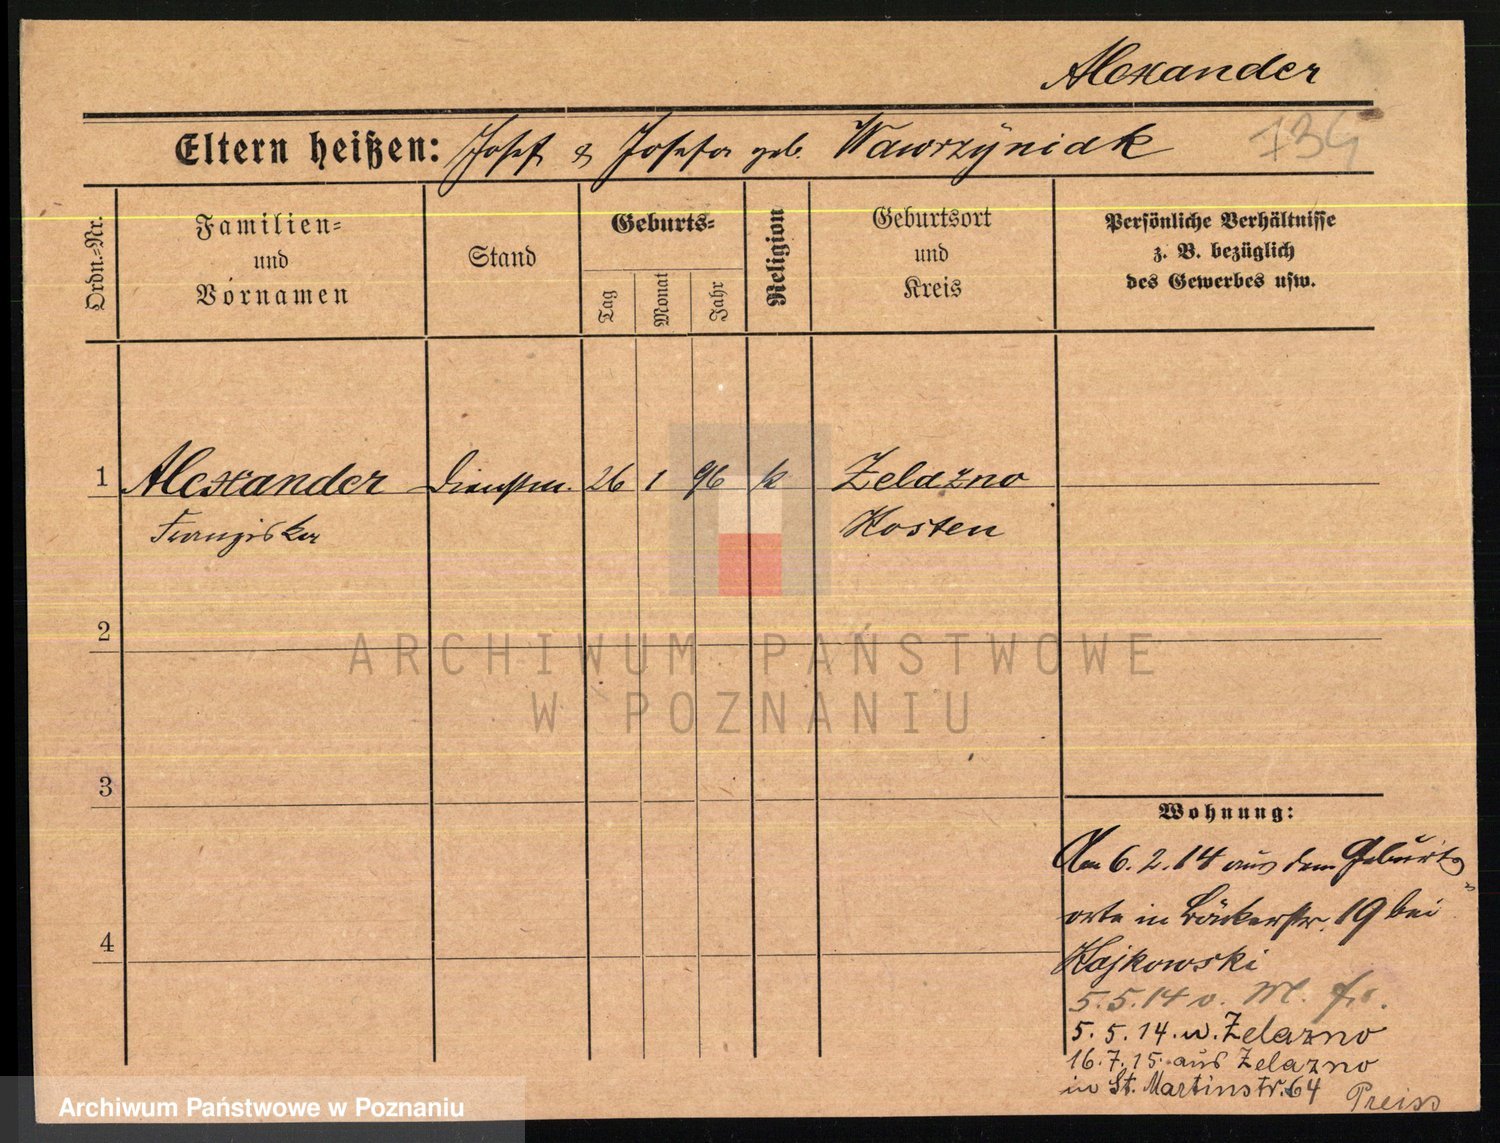 Alexander
Eltern heißen: Josef & Josefa geb. Wawrzÿniak
Ordn.-Nr.
Familien-
und
Vornamen
Stand
Geburts-
Tag
Monat
Jahr
Religion
Geburtsort
und
Kreis
Persönliche Verhältnisse
z. B. bezüglich
des Gewerbes usw.
1 Alexander Dienstm. 26 1 96 k Zelazno
Franziska Kosten
2
3
4
ARCHIWUM PAŃSTWOWE
W POZNANIU
Wohnung:
Am 6.2.14 aus dem Geburts-
orte in Bäckerstr. 19 bei
Kajkowski
5.5.14 v. M.
5.5.14. n. Zelazno
16.7.15. aus Zelazno
in St. Martinstr. 64 Preiss
Archiwum Państwowe w Poznaniu